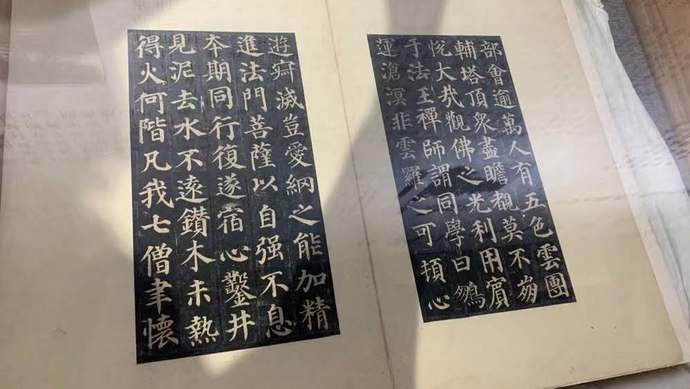 部會逾萬人有五色雲團
輔塔頂眾盡瞻覩莫不崩
悅大哉觀佛之光利用賓
于法王禪師謂同學曰鵬
運滄溟非雲羅之可頓心
遊寂滅豈愛網之能加精
進法門菩薩以自强不息
本期同行復遂宿心鑿井
見泥去水不遠鑽木未熱
得火何階凡我七僧聿懷